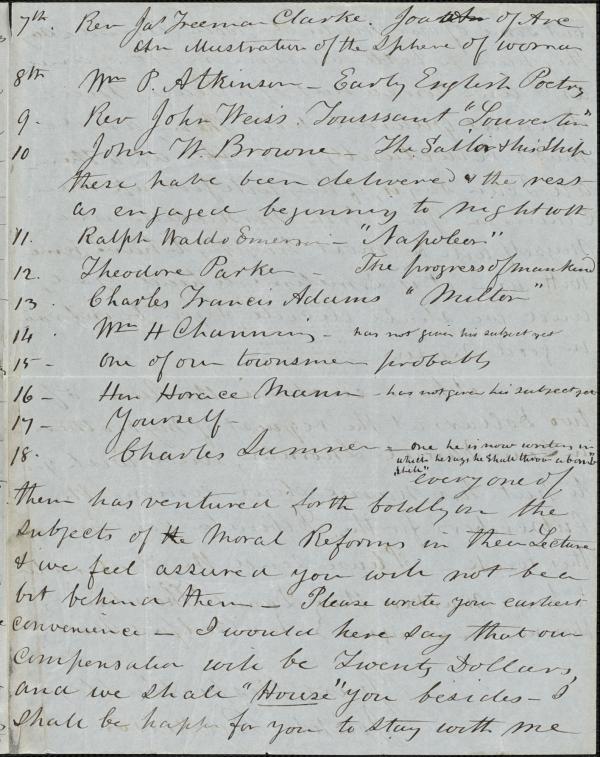 7th. Rev Jas Freeman Clarke. Joan of Arc
An illustration of the sphere of woman
8th Wm P. Atkinson - Early English Poetry
9. Rev John Weiss Toussaint "Louverture"
10 John W. Browne - The Sailor & his Ship
these have been delivered & the rest
as engaged beginning to night with
11. Ralph Waldo Emerson - "Napoleon"
12. Theodore Parker - The progress of mankind
13 Charles Francis Adams "Milton"
14 Wm H Channing - has not given his subject yet
15 - one of our townsmen probably
16 - Hon Horace Mann - has not given his subject yet
17 - Yourself -
18. Charles Sumner - one he is now writing in
which he says he shall throw a bomb
shell"
every one of
them has ventured forth boldly on the
subjects of the Moral Reforms in their Lecture
& we feel assured you will not be a
bit behind them - Please write your earliest
convenience - I would here say that our
compensation will be Twenty Dollars,
and we shall "House" you besides - I
shall be happy for you to stay with me